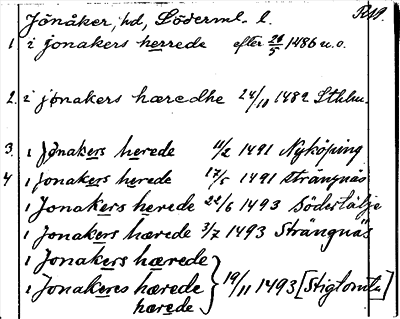 Jönåker, hd, Söderml. l. RAP.
1. i jonakers herrede efter 20/5 1486 u.o.
2. i jonakers hæredhe 24/11 1489 Sthlm.
3. i Jonakers herede 11/2 1491 Nyköping
4 i Jonakers herede 17/5 1491 Strängnäs
i Jonakers herede 22/6 1493 Södertälje
i Jonakers hærede 3/7 1493 Strängnäs
i Jonakers hærede
i Jonakeres hærede } 19/11 1493 [Stigtomta]
hærede